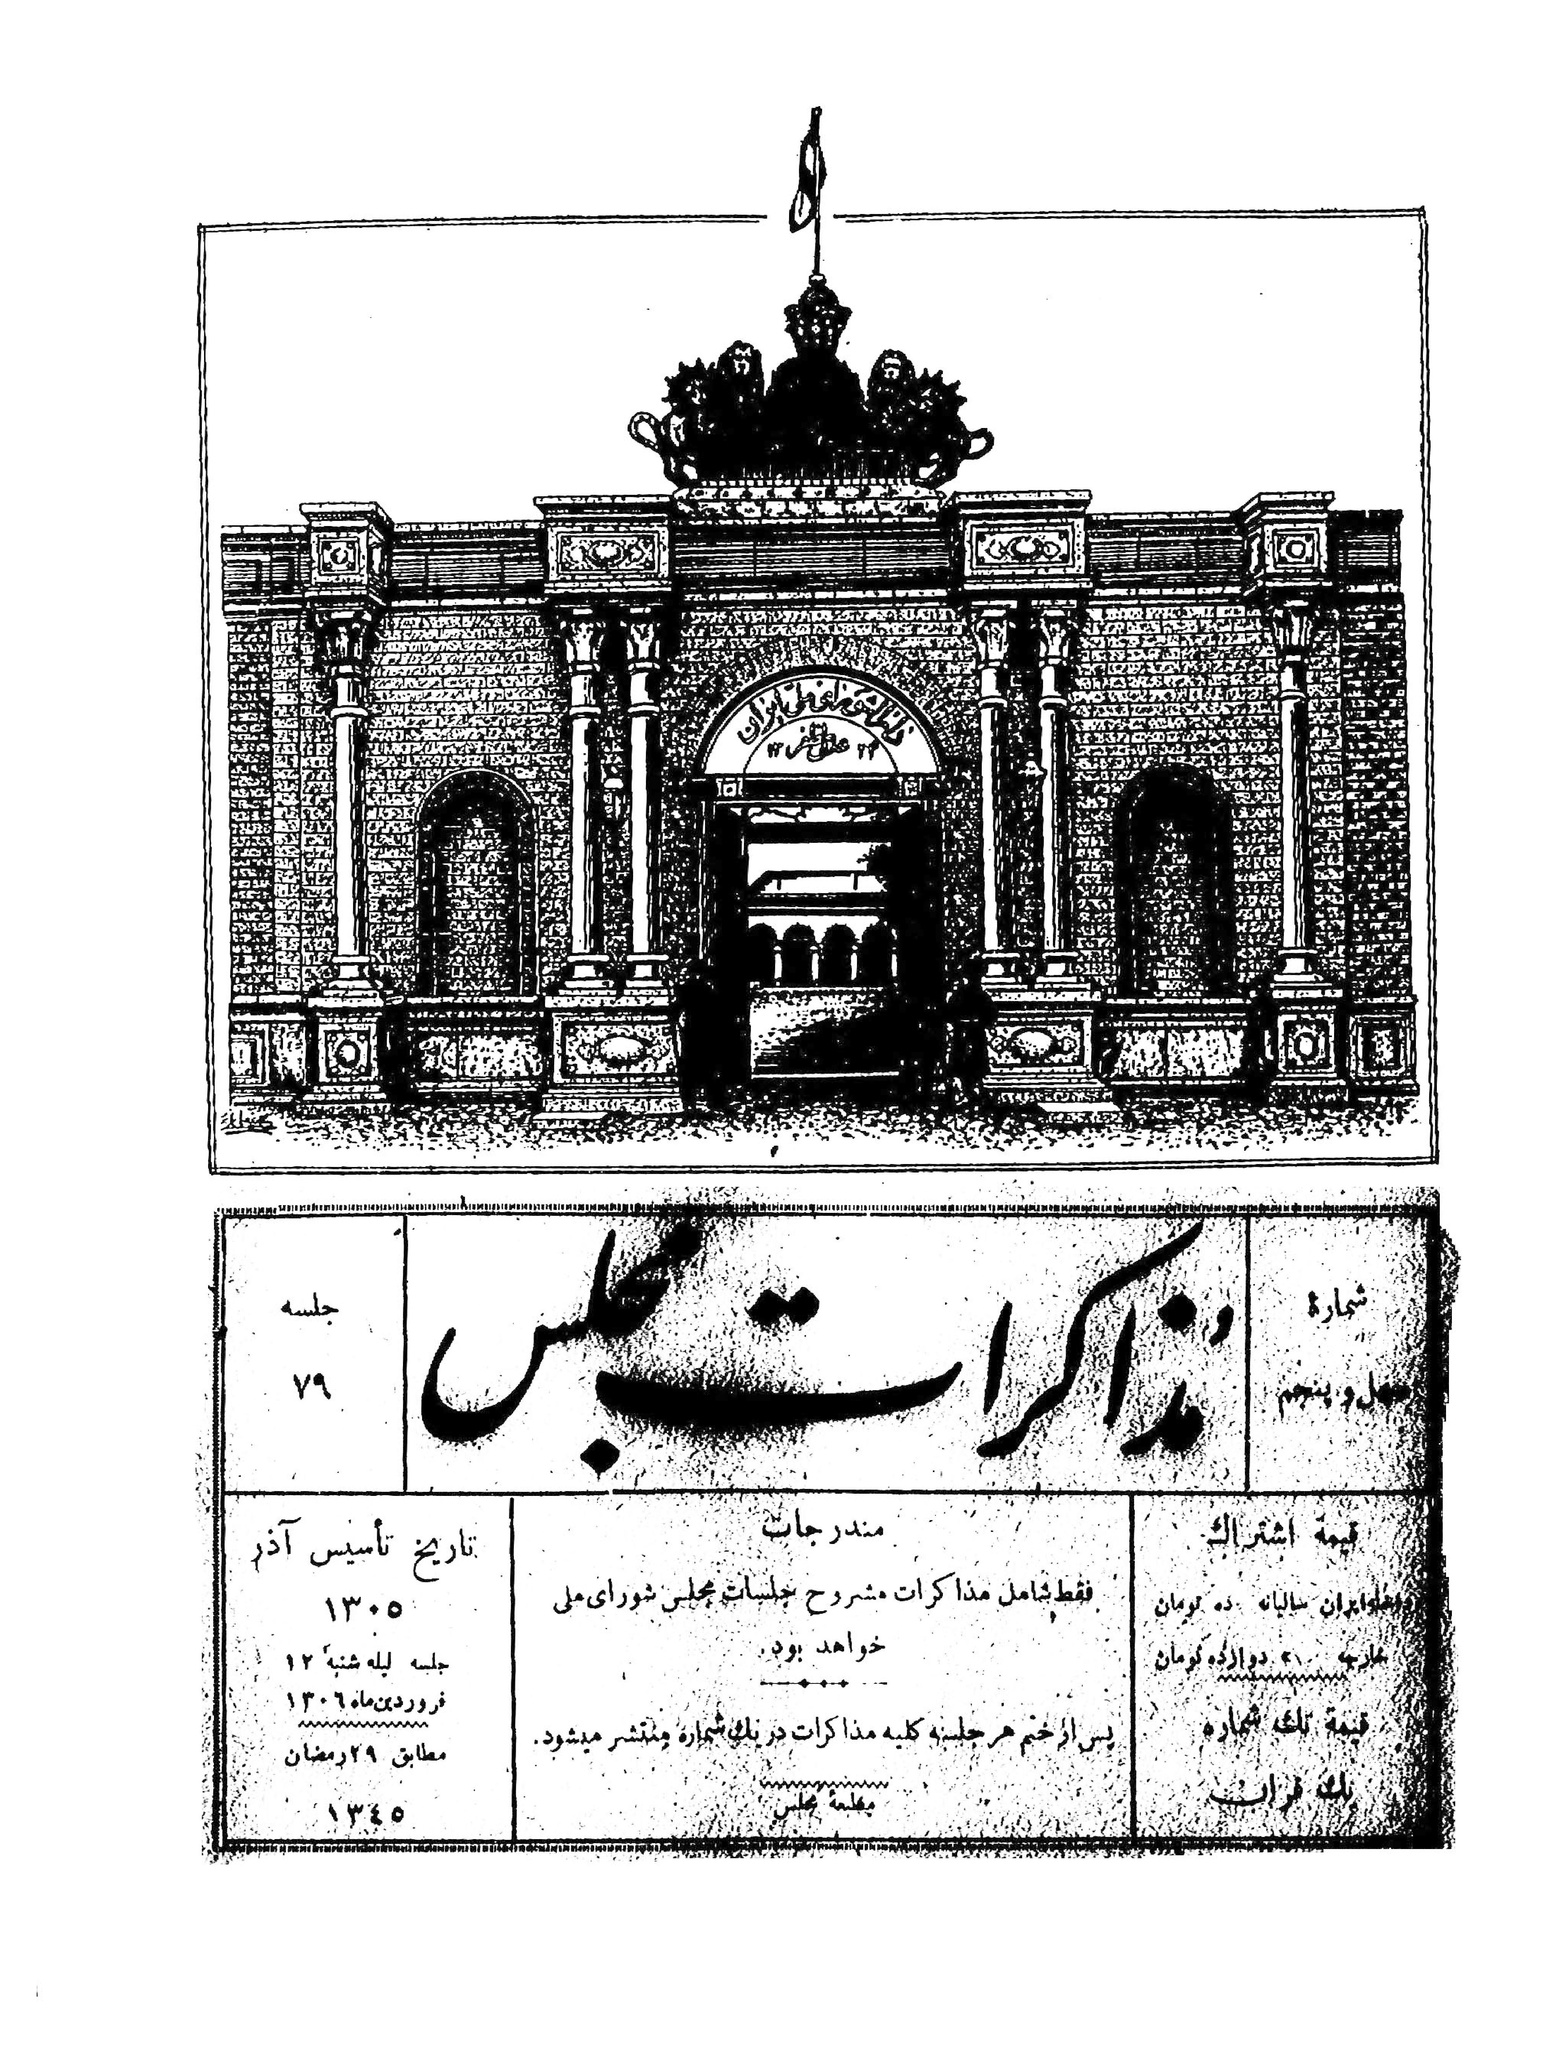 دارالشورای ملی ایران
عدل مظفر
مذاکرات مجلس
شمارهٔ
چهل و پنجم
جلسه
۷۹
قیمة اشتراك
داخله ایران سالیانه ده تومان
خارجه دوازده تومان
قیمة تك شماره
يك قران
مندرجات
فقط شامل مذاکرات مشروح جلسات مجلس شورای ملی
خواهد بود.
پس از ختم هر جلسه کلیه مذاکرات در يك شماره منتشر میشود.
مطبعهٔ مجلس
تاریخ تأسیس آذر
۱۳۰۵
جلسه لیله شنبهٔ ۱۲
فروردین ماه ۱۳۰٦
مطابق ۲۹ رمضان
۱۳٤٥